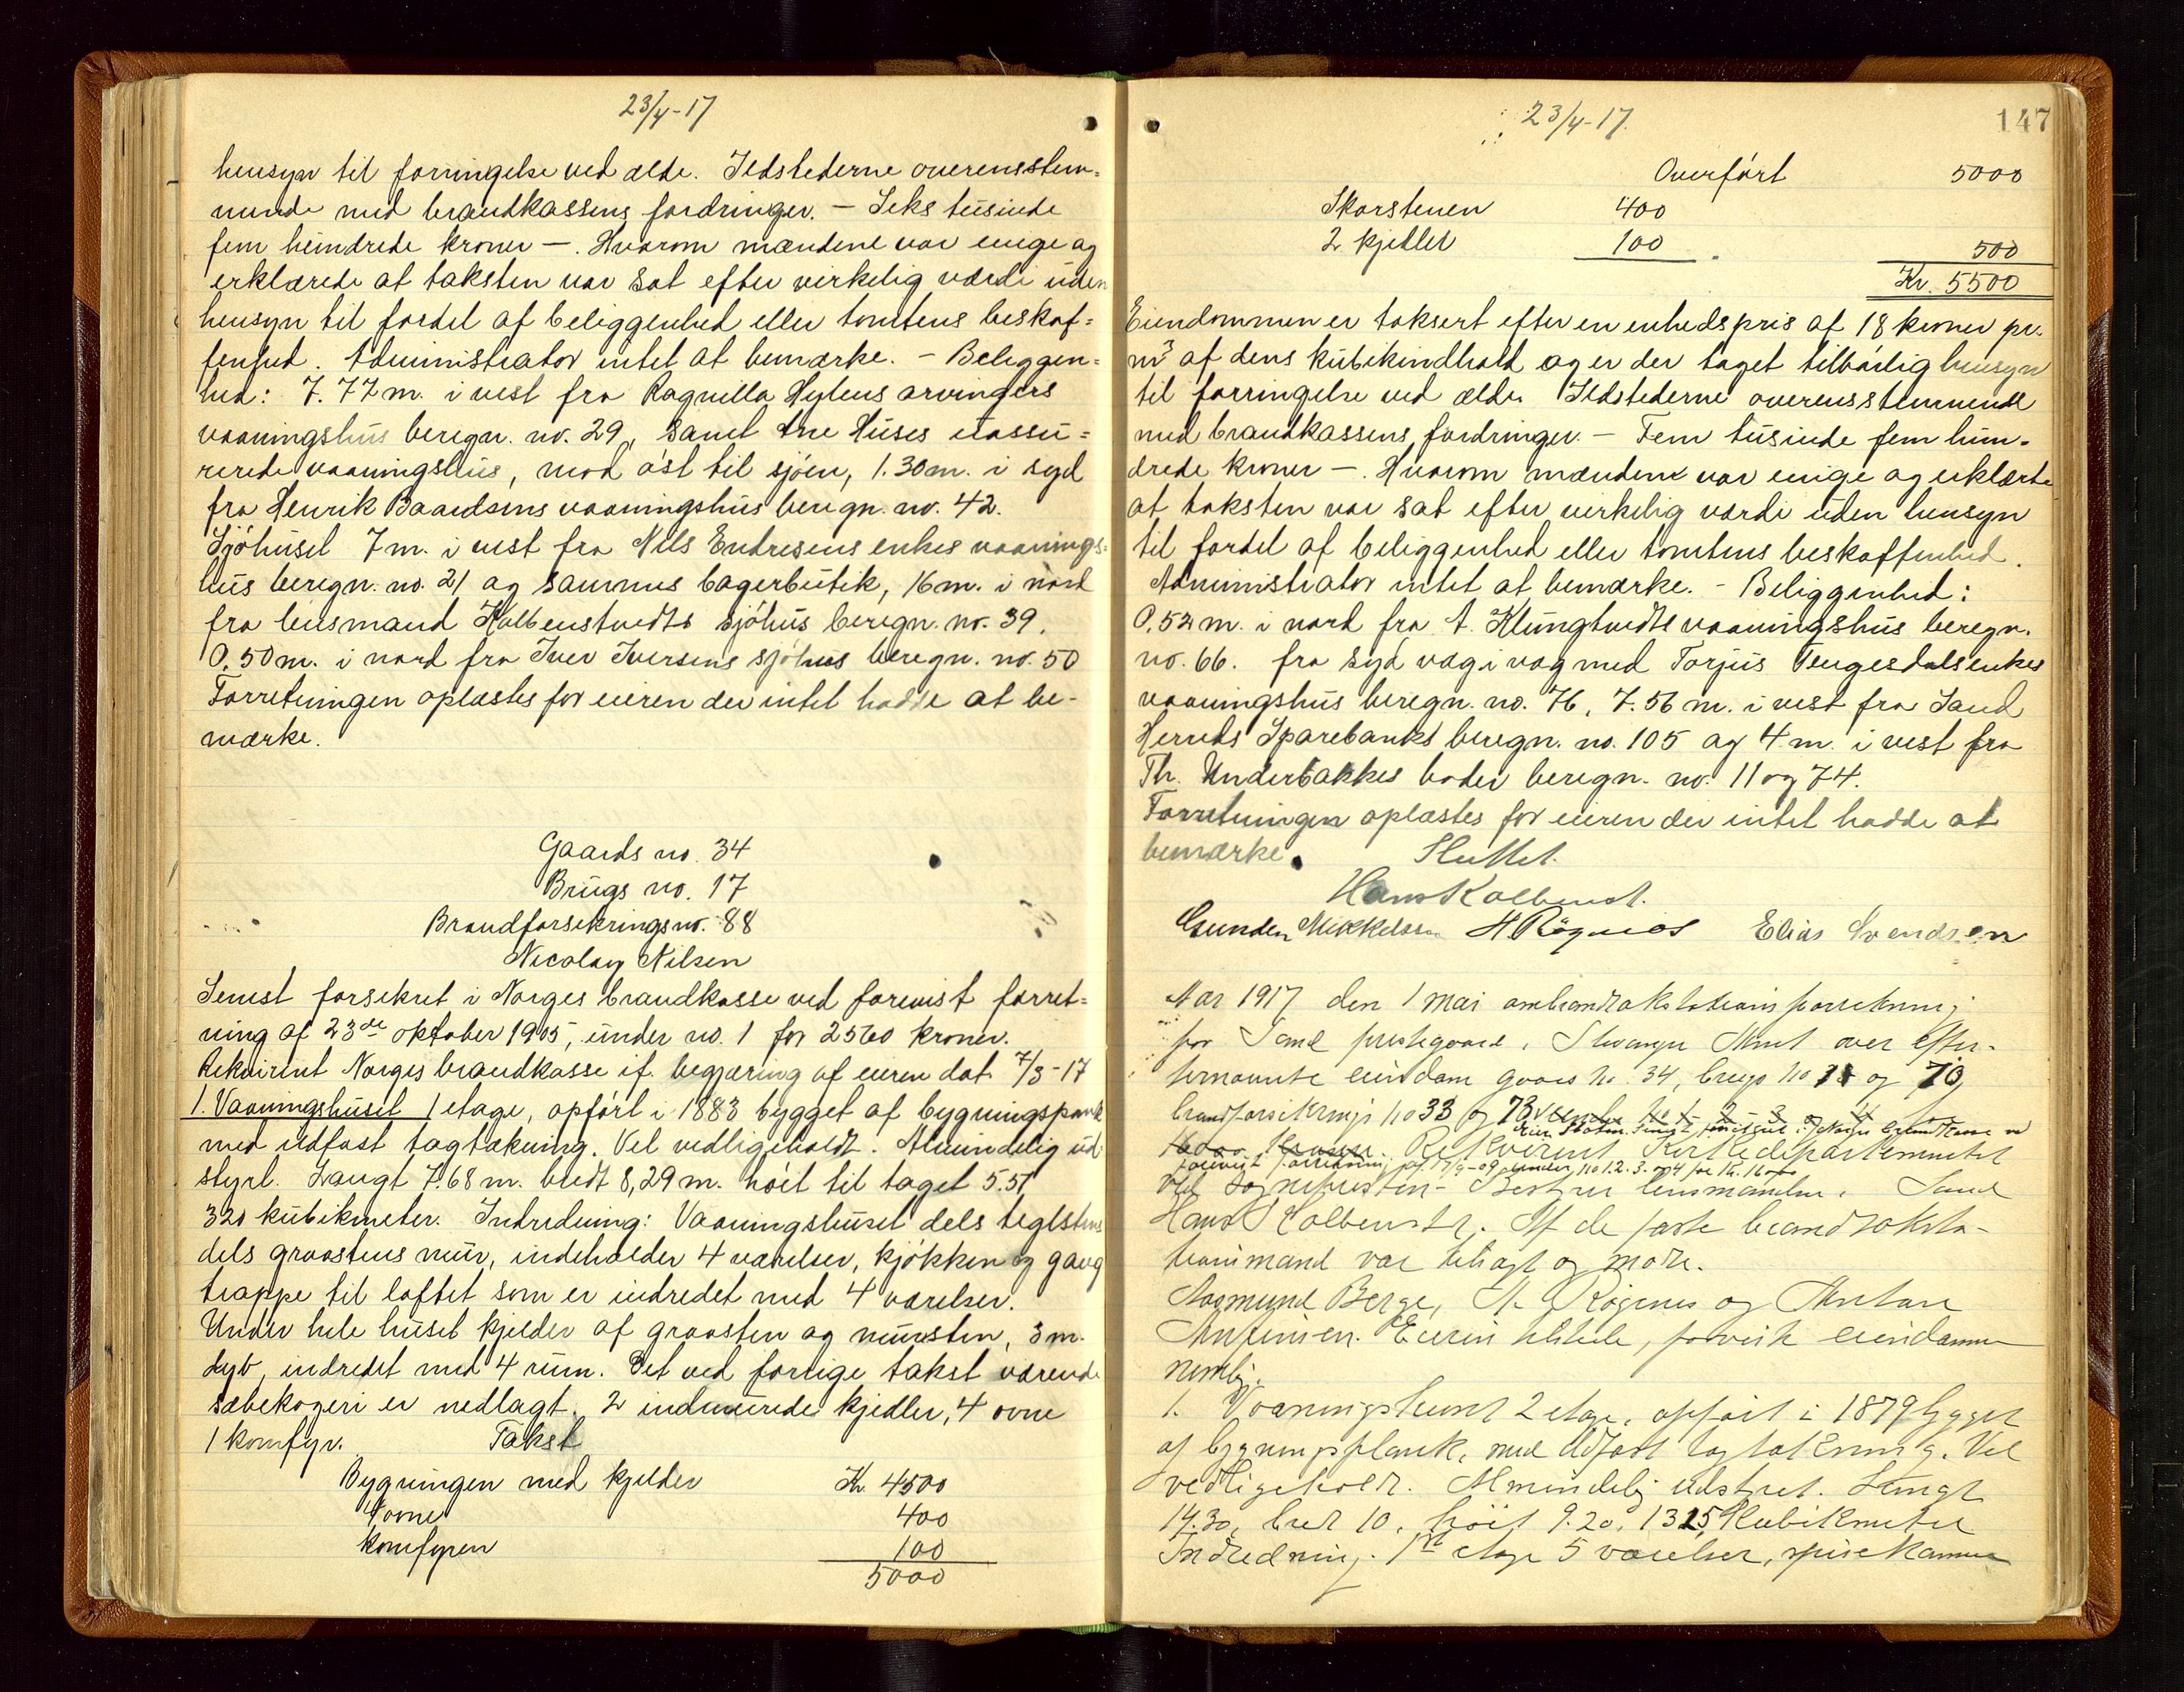 23/4-17
hensyn til forringelse ved ælde. Ildstederne overensstem=
mende med brandkassens fordringer. — Seks tusinde
fem hundrede kroner —. Hvorom mændene var enige og
erklærede at taksten var sat efter virkelig værdi uden
hensyn til fordel af beliggenhed eller tomtens beskaf=
fenhed. Administrator intet at bemærke. — Beliggen=
hed: 7.72 m. i vest fra Ragnilla Hylens arvingers
vaaningshus beregn. no. 29, samt Ane Huses uassu=
rerede vaaningshus, mod øst til sjøen, 1.30 m. i syd
fra Henrik Baardsens vaaningshus beregn. no. 42.
Sjøhuset 7 m. i vest fra Nils Endresens enkes vaanings=
hus beregn. no. 21 og sammes bagerbutik, 16 m. i nord
fra lensmand Kolbenstvedts sjøhus beregn. no. 39.
0.50 m. i nord fra Iver Iversens sjøhus beregn. no. 50
Forretningen oplæstes for eieren der intet hadde at be-
mærke.
Gaards no. 34
Brugs no. 17
Brandforsikringsno. 88
Nicolay Nilsen
Senest forsikret i Norges brandkasse ved forevist forret=
ning af 23de oktober 1905, under no. 1 for 2560 kroner.
Rekvirent Norges brandkasse if. begjæring af eieren dat. 7/3-17
1. Vaaningshuset 1 etage, opført i 1883 bygget af bygningsplank
med ildfast tagtækning. Vel vedligeholdt. Almindelig ud
styrt. Langt 7.68 m. bredt 8,29 m. høit til taget 5.51
320 kubikmeter. Indredning: Vaaningshuset dels teglstens
dels graastens mur, indeholder 4 værelser, kjøkken og gang
trappe til loftet som er indredet med 4 værelser.
Under hele huset kjelder af graasten og mursten, 3 m.
dyb, indredet med 4 rum. Det ved forrige takst værende
sæbekogeri er nedlagt. 2 indmurede kjedler, 4 ovne
1 komfyr. Takst
Bygningen med kjelder Kr. 4500
4 ovne 400
komfyren 100
5000
23/4-17. 147
Overført 5000
Skorstenen 400
2 kjedler 100 500
Kr. 5500
Eiendommen er taksert efter en enhedspris af 18 kroner pr.
m3 af dens kubikindhold og er der taget tilbørlig hensyn
til forringelse ved ælde. Ildstederne overensstemmende
med brandkassens fordringer. — Fem tusinde fem hun-
drede kroner —. Hvorom mændene var enige og erklærte
at taksten var sat efter virkelig værdi uden hensyn
til fordel af beliggenhed eller tomtens beskaffenhed.
Administrator intet at bemærke. - Beliggenhed:
0.52 m. i nord fra A. Klungtvedts vaaningshus beregn.
no. 66. fra syd væg i væg med Torjus Tengesdals enkes
vaaningshus beregn. no. 76, 7.56 m. i vest fra Sand
Herreds Sparebanks beregn. no. 105 og 4 m. i vest fra
Th. Underbakkes boder beregn. no. 11 og 74.
Forretningen oplæstes for eieren der intet hadde at
bemærke. Sluttet.
Hans Kolbenst.
Gunder Mikkelsen H Røgnes Elias Svendsen
Aar 1917 den 1 mai brandtakstationsforretning
for Sand prestegaard, Stavanger Amt over efter-
nævnte eiendom gaards no. 34, brugs no og 70,
brandforsikrings no 33 og 73
Rekvirent Kirkedepartementet
forevist forretning af 17/9-09 under no 1.2.3. og 4 for Kr. 16000
ved sognepresten - Bestyrer lensmanden i Sand
Hans Kolbenstv. Af de faste brandtaksta-
tionsmænd var tilsagt og mødte.
Aagmund Berge, H. Røgenes og Anton
Eieren tilstede, forviste eiendommen
nemlig.
1. Vaaningshuset 2 etage, opført i 1879 bygget
af bygningsplank, med ildfast tagtækning. Vel
vedligeholdt. Almindelig udstyret. Langt
14.30, bred 10, høit 9.20, 1315 Kubikmeter
Indredning. 1ste etage 5 værelser, spisekammer